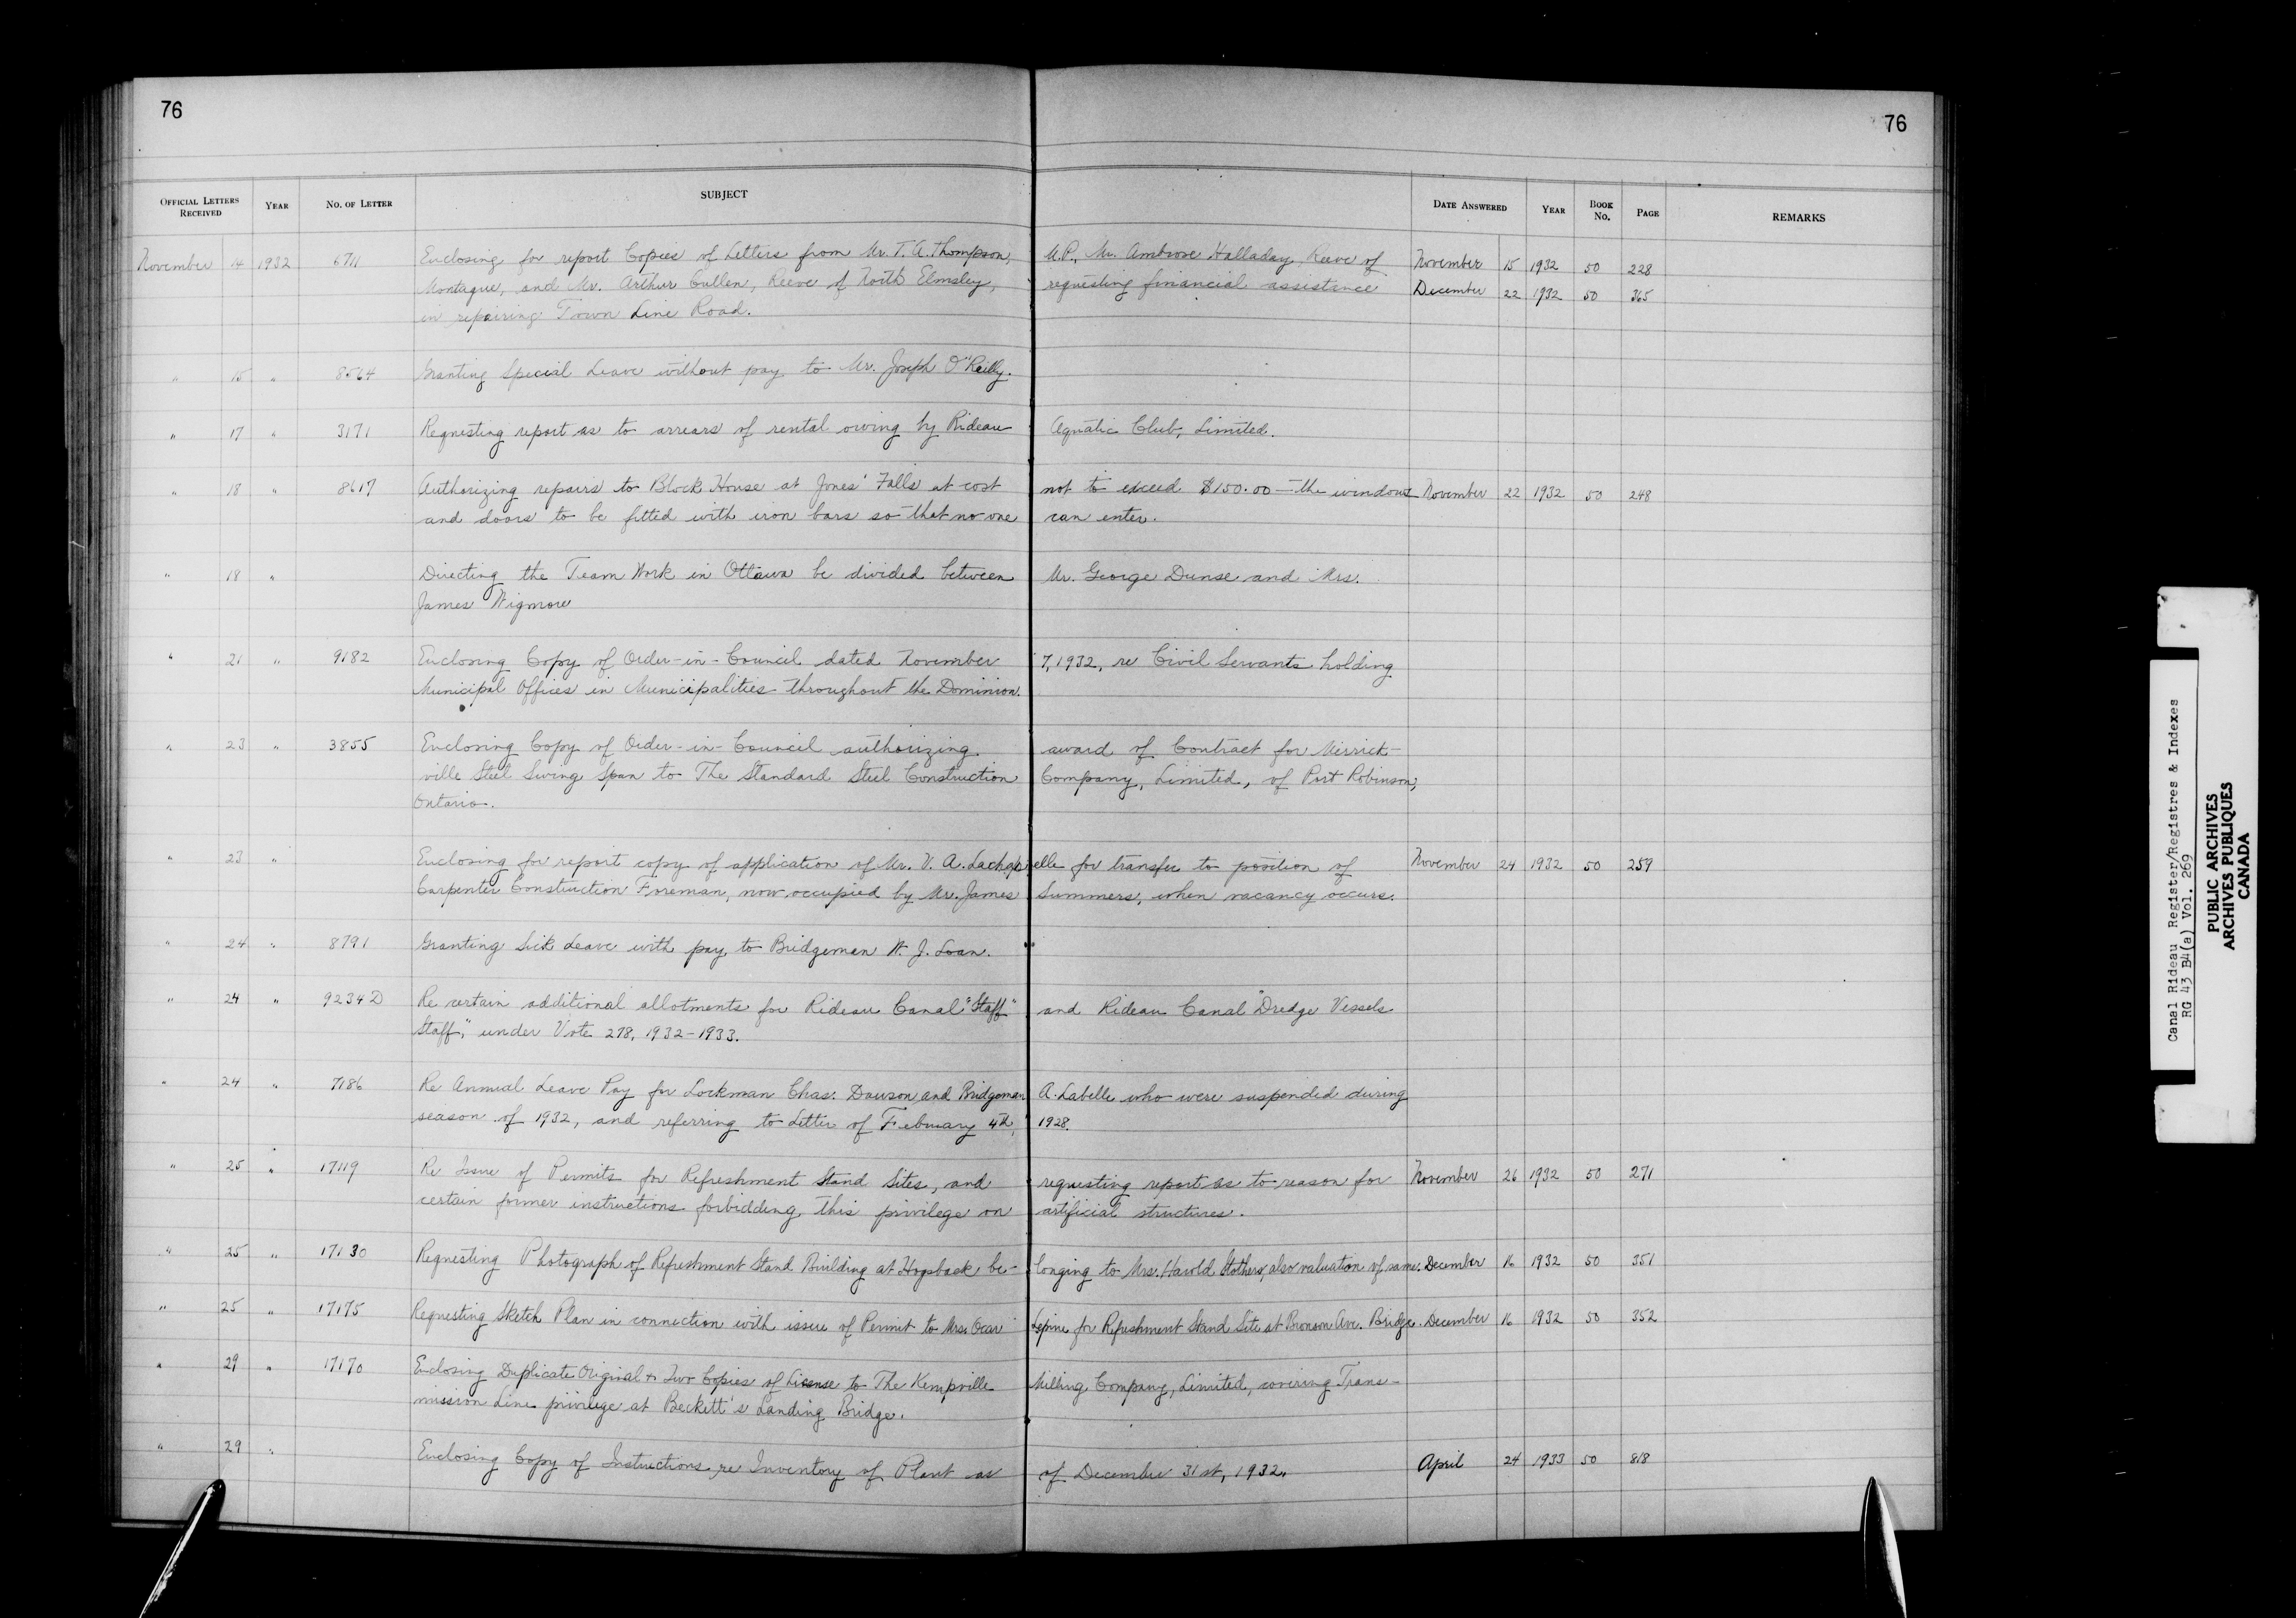 76
76
OFFICIAL LETTERS RECEIVED YEAR NO. OF LETTER SUBJECT DATE ANSWERED YEAR BOOK No. PAGE REMARKS
November 14 1932 6711 Enclosing for report Copies of Letters from Mr. T. A. Thompson, M.P., Mr. Ambrose Halladay, Reeve of November 15 1932 50 228
Montague, and Mr. Arthur Cullen, Reeve of North Elmsley, requesting financial assistance December 22 1932 50 365
in repairing Town Line Road.
" 15 " 8564 Granting Special Leave without pay to Mr. Joseph O'Reilly.
" 17 " 3171 Requesting report as to arrears of rental owing by Rideau Aquatic Club, Limited.
" 18 " 8617 Authorizing repairs to Block House at Jones' Falls at cost not to exceed $150.00 — the windows November 22 1932 50 248
and doors to be fitted with iron bars so that no one can enter.
" 18 " Directing the Team Work in Ottawa be divided between Mr. George Dunse and Mrs.
James Wigmore
" 21 " 9182 Enclosing Copy of Order-in-Council dated November 7, 1932, re Civil Servants holding
Municipal Offices in Municipalities throughout the Dominion.
" 23 " 3855 Enclosing Copy of Order-in-Council authorizing award of Contract for Merrick-
ville Steel Swing Span to The Standard Steel Construction Company, Limited, of Port Robinson,
Ontario.
" 23 " Enclosing for report copy of application of Mr. V. A. Lachapelle for transfer to position of November 24 1932 50 259
Carpenter Construction Foreman, now occupied by Mr. James Summers, when vacancy occurs.
" 24 " 8791 Granting Sick Leave with pay, to Bridgeman W. J. Loan.
" 24 " 9234 D Re certain additional allotments for Rideau Canal "Staff" and Rideau Canal "Dredge Vessels
Staff," under Vote 278, 1932-1933.
" 24 " 7186 Re Annual Leave Pay for Lockman Chas. Dawson and Bridgeman A. Labelle who were suspended during
season of 1932, and referring to Letter of February 4th, 1928.
" 25 " 17119 Re Issue of Permits for Refreshment Stand Sites, and requesting report as to reason for November 26 1932 50 271
certain former instructions forbidding this privilege on artificial structures.
" 25 " 17130 Requesting Photograph of Refreshment Stand Building at Hogsback be- longing to Mrs. Harold Stothers, also valuation of same. December 16 1932 50 351
" 25 " 17175 Requesting Sketch Plan in connection with issue of Permit to Mrs. Oscar Lepine for Refreshment Stand Site at Bronson Ave. Bridge. December 16 1932 50 352
" 29 " 17170 Enclosing Duplicate Original & Two Copies of License to The Kempville Milling Company, Limited, covering Trans-
mission Line privilege at Beckett's Landing Bridge.
" 29 " Enclosing Copy of Instructions re Inventory of Plant as of December 31st, 1932. April 24 1933 50 818
Canal Rideau Register/Registres & Indexes
RG 43 B4(a) Vol. 269
PUBLIC ARCHIVES
ARCHIVES PUBLIQUES
CANADA